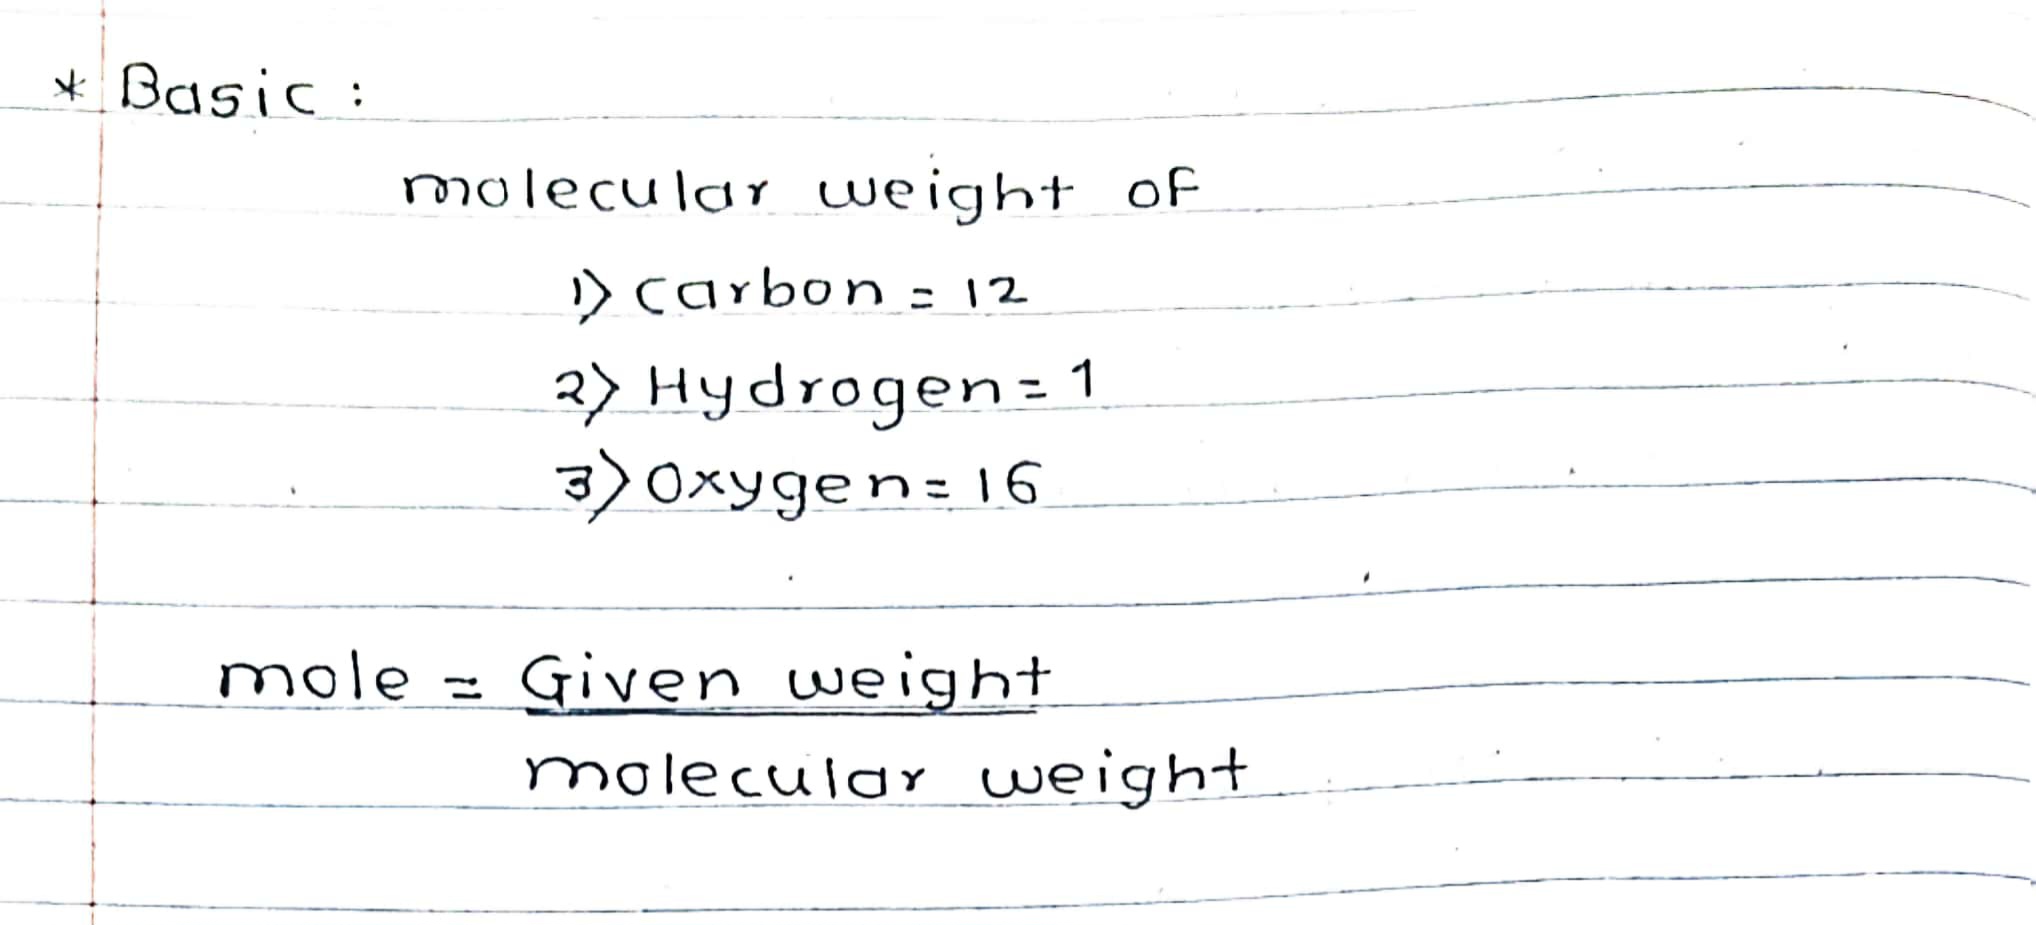 * Basic :
molecular weight of
1) carbon = 12
2) Hydrogen = 1
3) Oxygen = 16
mole = Given weight
molecular weight